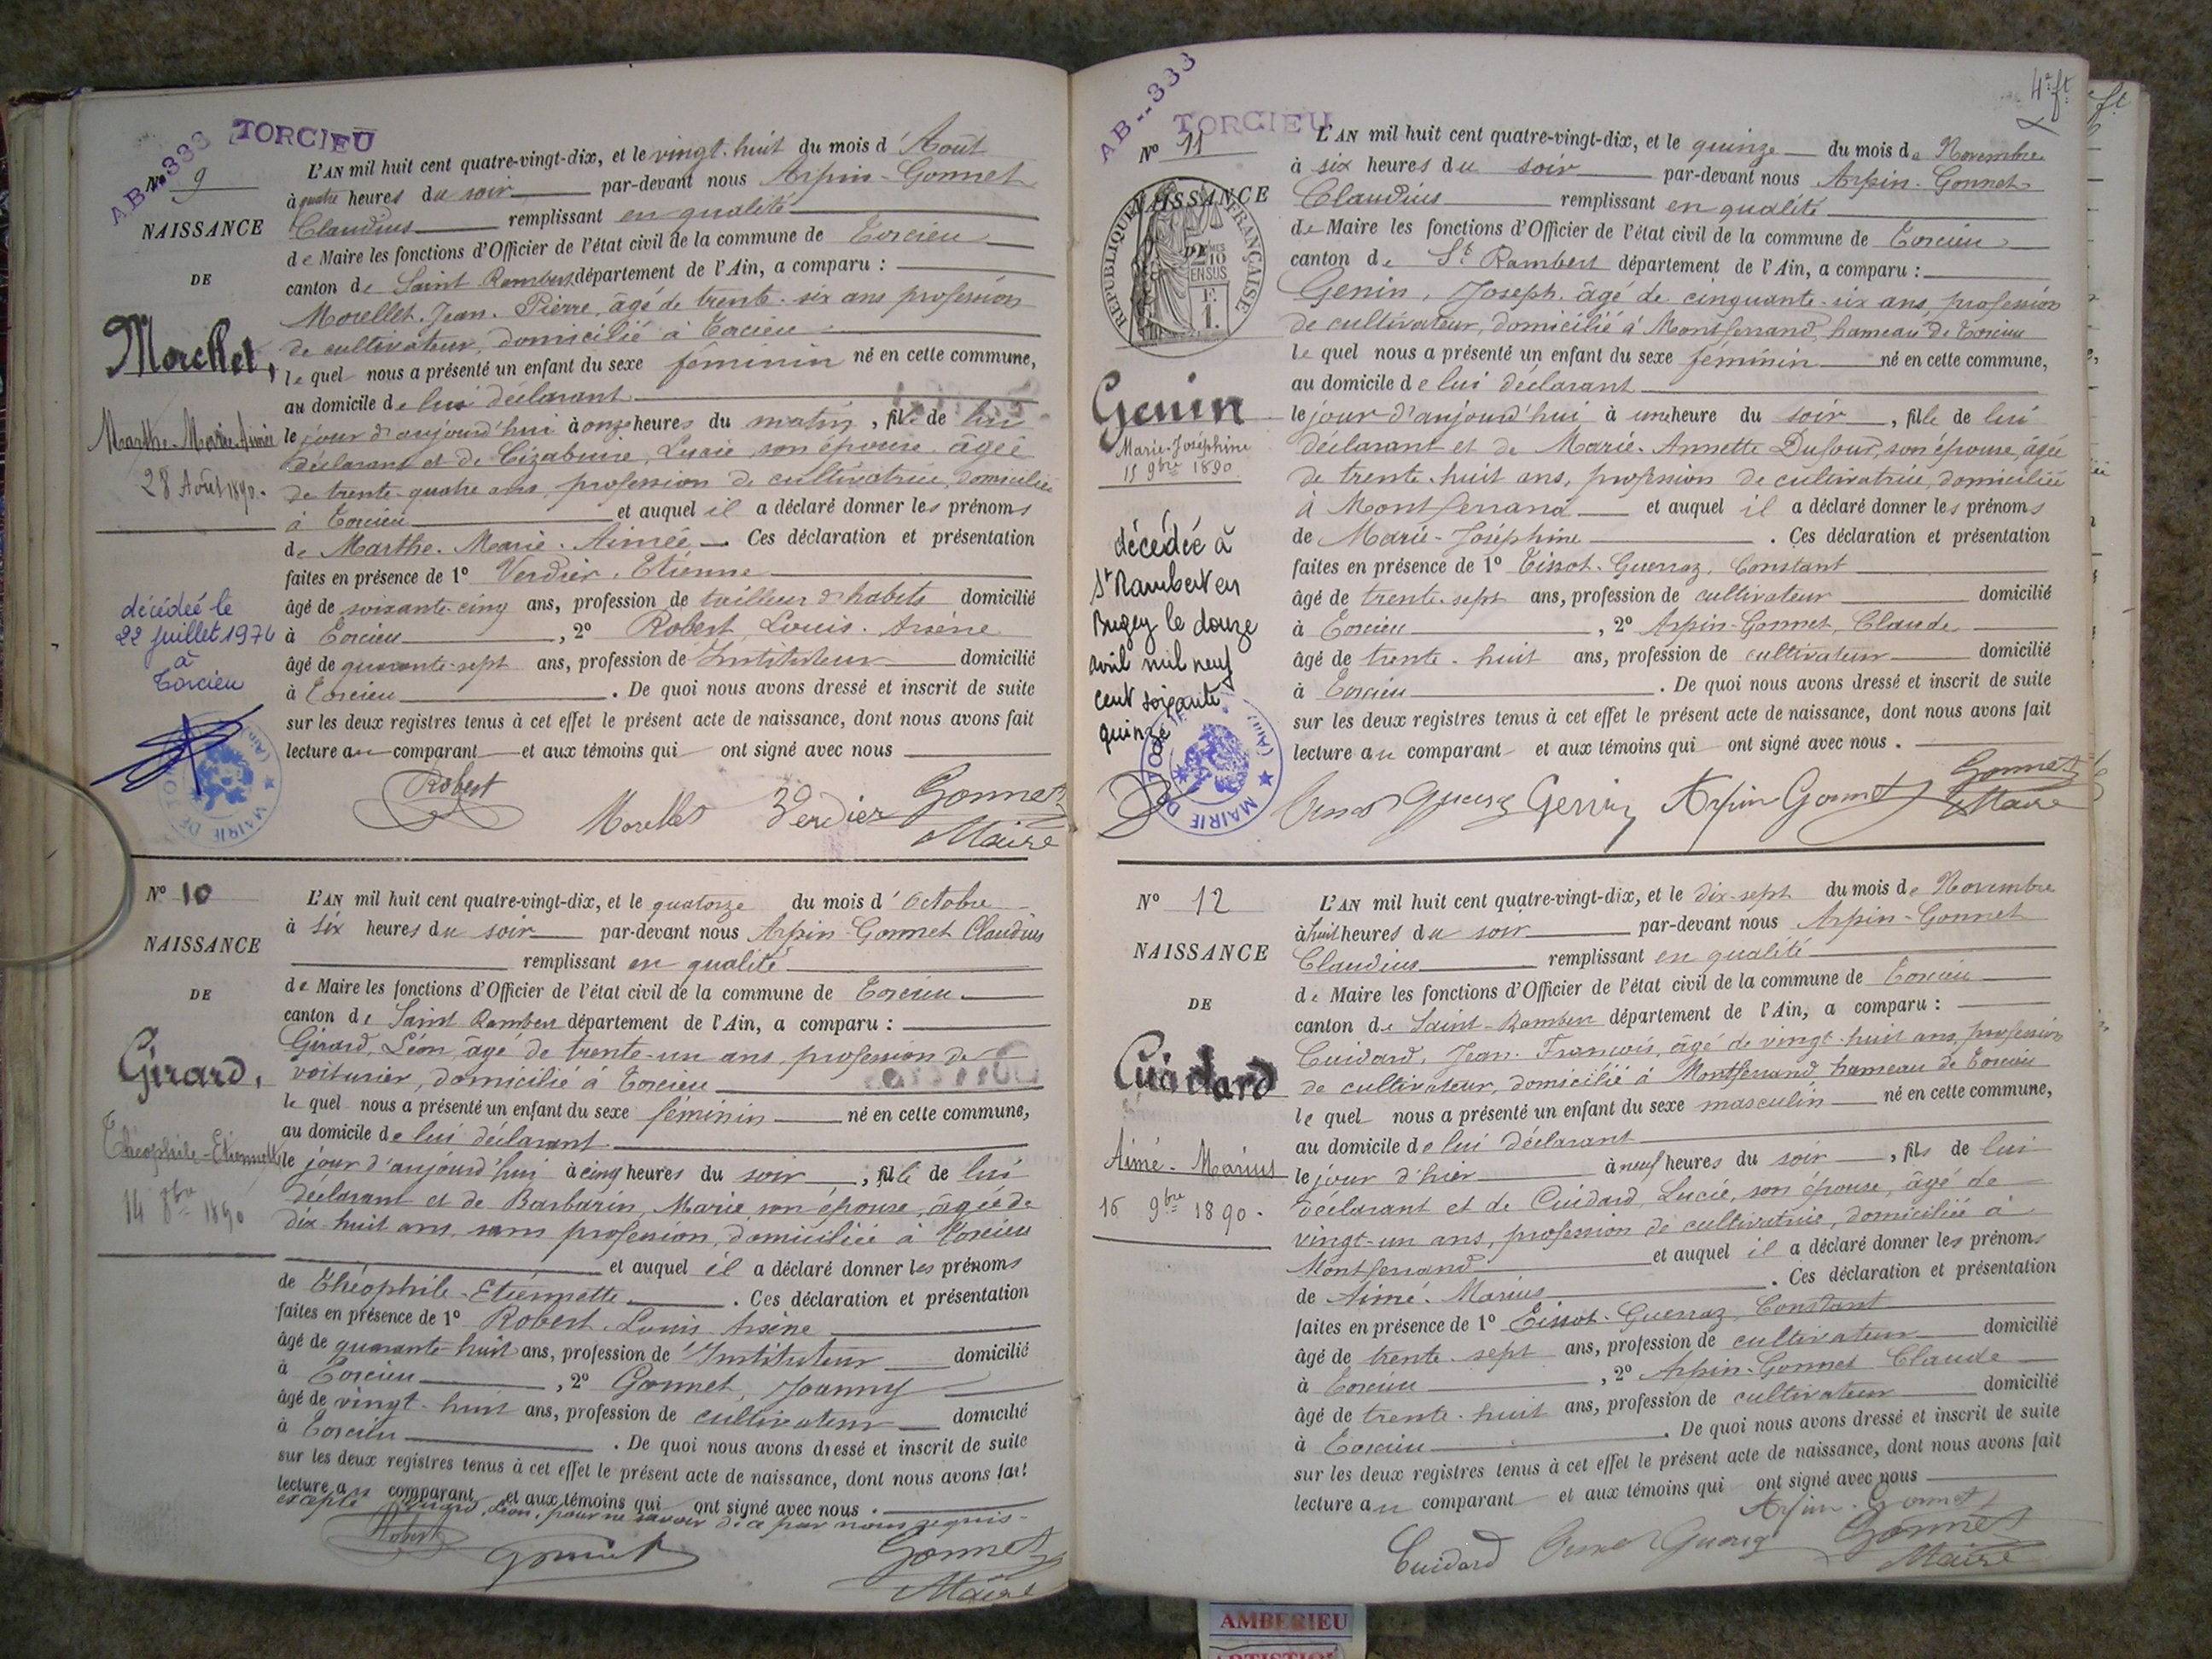 AB--333 TORCIEU
N° 9
NAISSANCE
DE
Morellet,
Marthe-Marie-Aimée
28 Août 1890.
décédée le
22 juillet 1974
à
Torcieu
L'AN mil huit cent quatre-vingt-dix, et le vingt-huit du mois d'Août
à quatre heures du soir par-devant nous Arpin-Gonnet
Claudius remplissant en qualité
de Maire les fonctions d'Officier de l'état civil de la commune de Torcieu
canton de Saint Rambert département de l'Ain, a comparu :
Morellet. Jean. Pierre, âgé de trente-six ans profession
de cultivateur, domicilié à Torcieu
lequel nous a présenté un enfant du sexe féminin né en cette commune,
au domicile de lui déclarant
le jour d'aujourd'hui à onze heures du matin, fille de lui
déclarant et de Cizabuire, Lucie, son épouse, âgée
de trente-quatre ans, profession de cultivatrice, domiciliée
à Torcieu et auquel il a déclaré donner les prénoms
de Marthe. Marie. Aimée. Ces déclaration et présentation
faites en présence de 1° Verdier. Etienne
âgé de soixante-cinq ans, profession de tailleur d'habits domicilié
à Torcieu, 2° Robert, Louis. Arsène
âgé de quarante-sept ans, profession de Instituteur domicilié
à Torcieu. De quoi nous avons dressé et inscrit de suite
sur les deux registres tenus à cet effet le présent acte de naissance, dont nous avons fait
lecture au comparant et aux témoins qui ont signé avec nous
Robert Morellet Verdier Gonnet
Maire
MAIRIE DE TORCIEU (Ain)
N° 10
NAISSANCE
DE
Girard,
Théophile-Etiennette
14 8bre 1890
L'AN mil huit cent quatre-vingt-dix, et le quatorze du mois d'Octobre
à six heures du soir par-devant nous Arpin-Gonnet Claudius
remplissant en qualité
de Maire les fonctions d'Officier de l'état civil de la commune de Torcieu
canton de Saint Rambert département de l'Ain, a comparu :
Girard, Léon, âgé de trente-un ans, profession de
voiturier, domicilié à Torcieu
lequel nous a présenté un enfant du sexe féminin né en cette commune,
au domicile de lui déclarant
le jour d'aujourd'hui à cinq heures du soir, fille de lui
déclarant et de Barbarin, Marie, son épouse, âgée de
dix huit ans, sans profession, domiciliée à Torcieu
et auquel il a déclaré donner les prénoms
de Théophile-Etiennette. Ces déclaration et présentation
faites en présence de 1° Robert. Louis. Arsène
âgé de quarante-huit ans, profession de Instituteur domicilié
à Torcieu, 2° Gonnet, Joanny
âgé de vingt-huit ans, profession de cultivateur domicilié
à Torcieu. De quoi nous avons dressé et inscrit de suite
sur les deux registres tenus à cet effet le présent acte de naissance, dont nous avons fait
lecture au comparant et aux témoins qui ont signé avec nous.
excepté Girard, Léon, pour ne savoir de ce par nous requis.
Robert Gonnet Gonnet
Maire
AB--333 TORCIEU
4e ft
N° 11
NAISSANCE
RÉPUBLIQUE FRANÇAISE
2/10 EN SUS
1 F.
Genin
Marie-Joséphine
15 9bre 1890
décédée à
St Rambert en
Bugey le douze
avril mil neuf
cent soixante
quinze
L'AN mil huit cent quatre-vingt-dix, et le quinze du mois de Novembre
à six heures du soir par-devant nous Arpin-Gonnet
Claudius remplissant en qualité
de Maire les fonctions d'Officier de l'état civil de la commune de Torcieu
canton de St Rambert département de l'Ain, a comparu :
Genin, Joseph. âgé de cinquante-six ans, profession
de cultivateur, domicilié à Montferrand, hameau de Torcieu
lequel nous a présenté un enfant du sexe féminin né en cette commune,
au domicile de lui déclarant
le jour d'aujourd'hui à une heure du soir, fille de lui
déclarant et de Marie-Annette Dufour, son épouse, âgée
de trente-huit ans, profession de cultivatrice, domiciliée
à Montferrand et auquel il a déclaré donner les prénoms
de Marie-Joséphine. Ces déclaration et présentation
faites en présence de 1° Tissot-Guerraz, Constant
âgé de trente-sept ans, profession de cultivateur domicilié
à Torcieu, 2° Arpin-Gonnet, Claude
âgé de trente-huit ans, profession de cultivateur domicilié
à Torcieu. De quoi nous avons dressé et inscrit de suite
sur les deux registres tenus à cet effet le présent acte de naissance, dont nous avons fait
lecture au comparant et aux témoins qui ont signé avec nous.
Genin Arpin Gonnet Gonnet
Maire
MAIRIE DE TORCIEU (Ain)
N° 12
NAISSANCE
DE
Cuidard
Aimé-Marius
16 9bre 1890.
L'AN mil huit cent quatre-vingt-dix, et le dix-sept du mois de Novembre
à huit heures du soir par-devant nous Arpin-Gonnet
Claudius remplissant en qualité
de Maire les fonctions d'Officier de l'état civil de la commune de Torcieu
canton de Saint-Rambert département de l'Ain, a comparu :
Cuidard, Jean-François, âgé de vingt-huit ans, profession
de cultivateur, domicilié à Montferrand hameau de Torcieu
lequel nous a présenté un enfant du sexe masculin né en cette commune,
au domicile de lui déclarant
le jour d'hier à neuf heures du soir, fils de lui
déclarant et de Cuidard, Lucie, son épouse, âgé de
vingt-un ans, profession de cultivatrice, domiciliée à
Montferrand et auquel il a déclaré donner les prénoms
de Aimé-Marius. Ces déclaration et présentation
faites en présence de 1° Tissot-Guerraz, Constant
âgé de trente-sept ans, profession de cultivateur domicilié
à Torcieu, 2° Arpin-Gonnet Claude
âgé de trente-huit ans, profession de cultivateur domicilié
à Torcieu. De quoi nous avons dressé et inscrit de suite
sur les deux registres tenus à cet effet le présent acte de naissance, dont nous avons fait
lecture au comparant et aux témoins qui ont signé avec nous
Arpin-Gonnet
Cuidard Gonnet
Maire
AMBERIEU